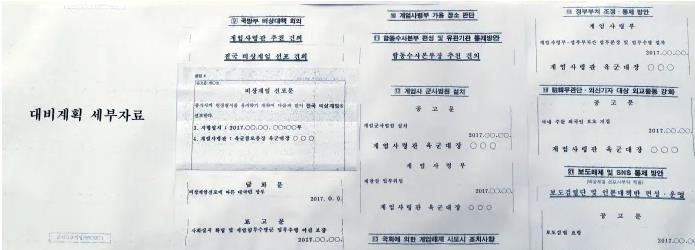 대비계획 세부자료
⑨ 국방부 비상대책 회의
계엄사령관 추천 건의
전국 비상계엄 선포 건의
비상계엄 선포문
선포한다.
3. 시행일시 : 2017.○○.○○. ○○:○○부
4. 계엄사령관 : 육군참모총장 육군대장 ○○○
담 화 문
비상계엄선포에 따른 대국민 당부
2017. 0. 0.
포 고 문
2017.○○.○○.
⑩ 계엄사령부 가용 장소 판단
⑪ 합동수사본부 편성 및 유관기관 통제방안
합동수사본부장 추천 건의
⑫ 계엄사 군사법원 설치
공 고 문
계엄군사법원 설치
2017.○○.○○.
계엄사령관 육군대장 ○○○
계 엄 사 령 부
재판권 업무위임
2017.○○.○○.
계엄사령관 육군대장 ○○○
⑬ 국회에 의한 계엄해제 시도시 조치사항
정부부처 조정·통제 방안
계 엄 사 령 부
2017.○○.○○.
계엄사령관 육군대장 ○○○
駐韓무관단·외신기자 대상 외교활동 강화
공 고 문
국내 주둔 외국인 보호 지침
2017.○○.○○.
계엄사령관 육군대장 ○○○
㉑ 보도매체 및 SNS 통제 방안
보도검열단 및 언론대책반 편성·운영
공 고 문
보도검열 요령
2017.○○.○○.